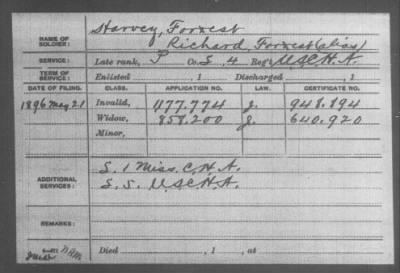 NAME OF SOLDIER: Harvey, Forrest
Richard, Forrest (alias)
SERVICE: Late rank, P Co. S, 4 Reg't U.S.C.H.A.
TERM OF SERVICE: Enlisted , 1 Discharged , 1
DATE OF FILING. CLASS. APPLICATION NO. LAW. CERTIFICATE NO.
1896 May 21 Invalid, 1177.774 J. 948.894
Widow, 858.200 J. 640.920
Minor,
ADDITIONAL SERVICES: S. 1 Miss. C.H.A.
S. 5 U.S.C.H.A.
REMARKS:
Died , 1 , at